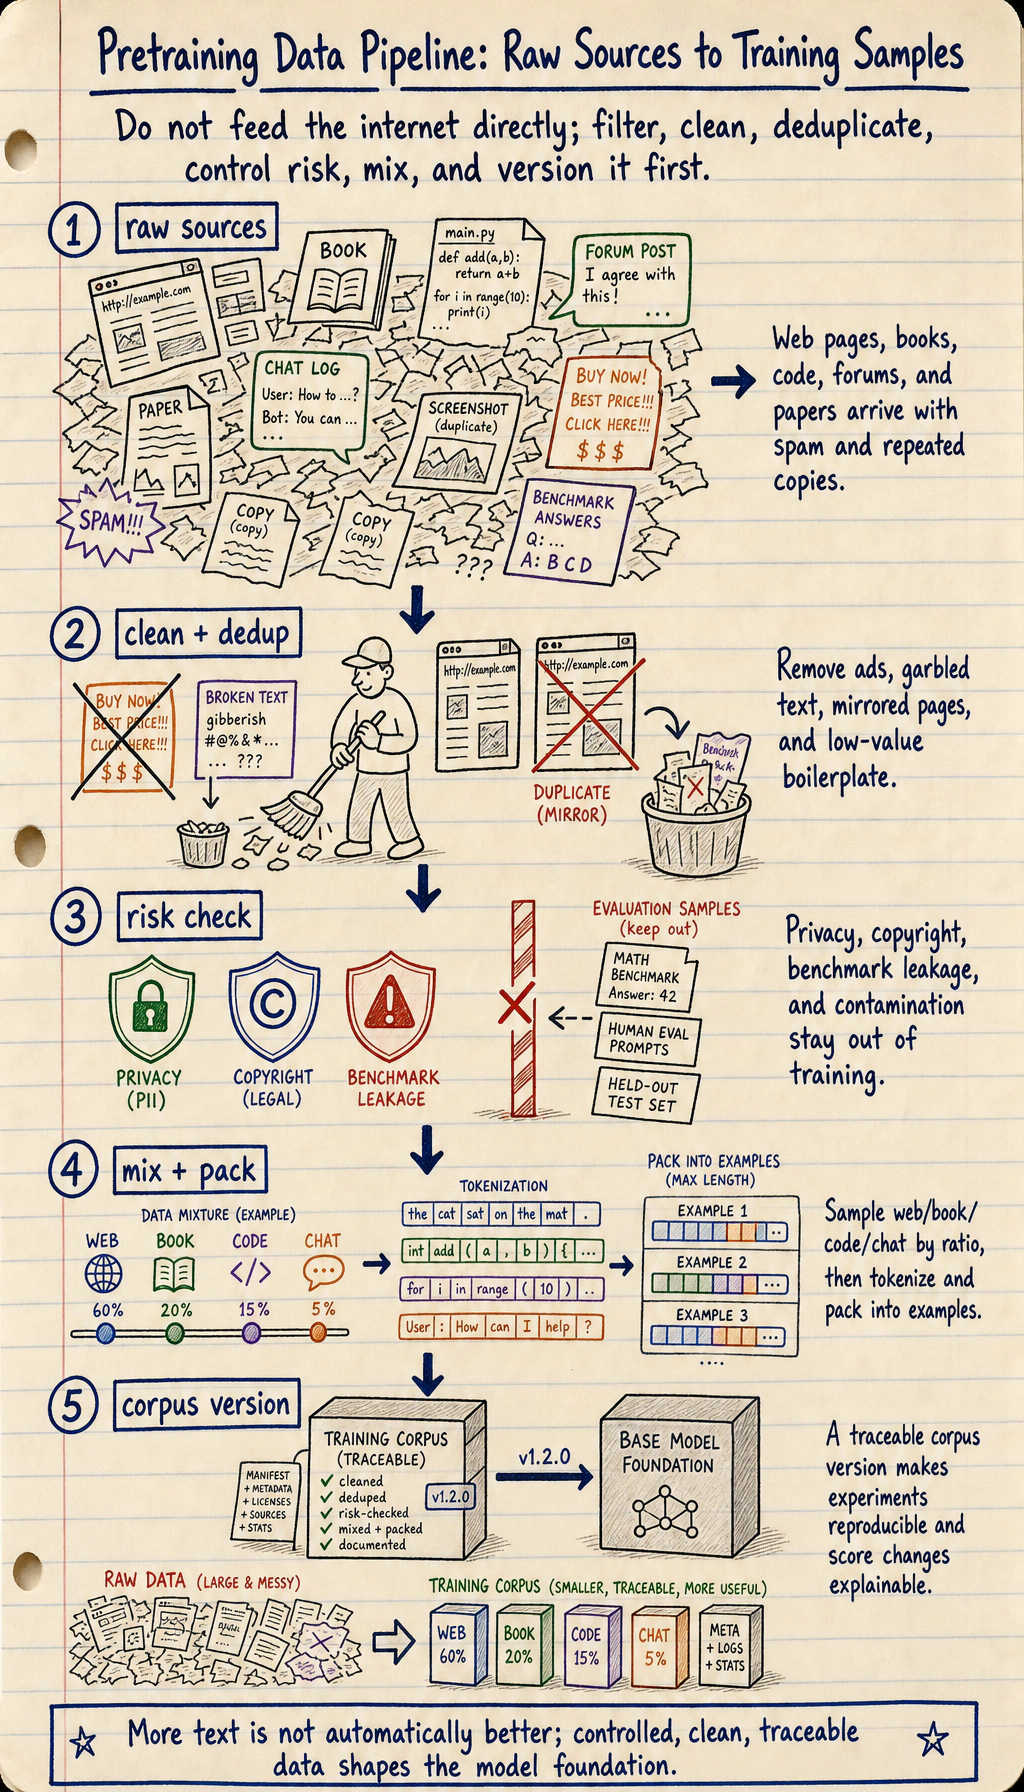 Pretraining Data Pipeline: Raw Sources to Training Samples
Do not feed the internet directly; filter, clean, deduplicate,
control risk, mix, and version it first.
1 raw sources
http://example.com
BOOK
main.py
def add(a,b):
return a+b
for i in range(10):
print(i)
...
FORUM POST
I agree with
this!
...
CHAT LOG
User: How to ...?
Bot: You can ...
...
PAPER
SCREENSHOT
(duplicate)
BUY NOW!
BEST PRICE!!!
CLICK HERE!!!
$ $ $
SPAM!!!
COPY
(copy)
COPY
(copy)
???
BENCHMARK
ANSWERS
Q: ...
A: B C D
Web pages, books,
code, forums, and
papers arrive with
spam and repeated
copies.
2 clean + dedup
BUY NOW!
BEST PRICE!!!
CLICK HERE!!!
$ $ $
BROKEN TEXT
gibberish
#@%&*...
... ???
http://example.com
http://example.com
DUPLICATE
(MIRROR)
Remove ads, garbled
text, mirrored pages,
and low-value
boilerplate.
3 risk check
PRIVACY
(PII)
COPYRIGHT
(LEGAL)
BENCHMARK
LEAKAGE
EVALUATION SAMPLES
(keep out)
MATH
BENCHMARK
Answer: 42
HUMAN EVAL
PROMPTS
HELD-OUT
TEST SET
Privacy, copyright,
benchmark leakage,
and contamination
stay out of
training.
4 mix + pack
DATA MIXTURE (EXAMPLE)
WEB BOOK CODE CHAT
</>
60% 20% 15% 5%
TOKENIZATION
the cat sat on the mat .
int add ( a , b ) { ...
for i in range ( 10 ) ..
User : How can I help ?
PACK INTO EXAMPLES
(MAX LENGTH)
EXAMPLE 1
..
EXAMPLE 2
...
EXAMPLE 3
...
....
Sample web/book/
code/chat by ratio,
then tokenize and
pack into examples.
5 corpus version
MANIFEST
+ METADATA
+ LICENSES
+ SOURCES
+ STATS
TRAINING CORPUS
(TRACEABLE)
✓ cleaned
✓ deduped
✓ risk-checked
✓ mixed + packed
✓ documented
v1.2.0
v1.2.0
BASE MODEL
FOUNDATION
A traceable corpus
version makes
experiments
reproducible and
score changes
explainable.
RAW DATA (LARGE & MESSY)
TRAINING CORPUS (SMALLER, TRACEABLE, MORE USEFUL)
WEB
60%
BOOK
20%
CODE
15%
CHAT
5%
META
+ LOGS
+ STATS
More text is not automatically better; controlled, clean, traceable
data shapes the model foundation.